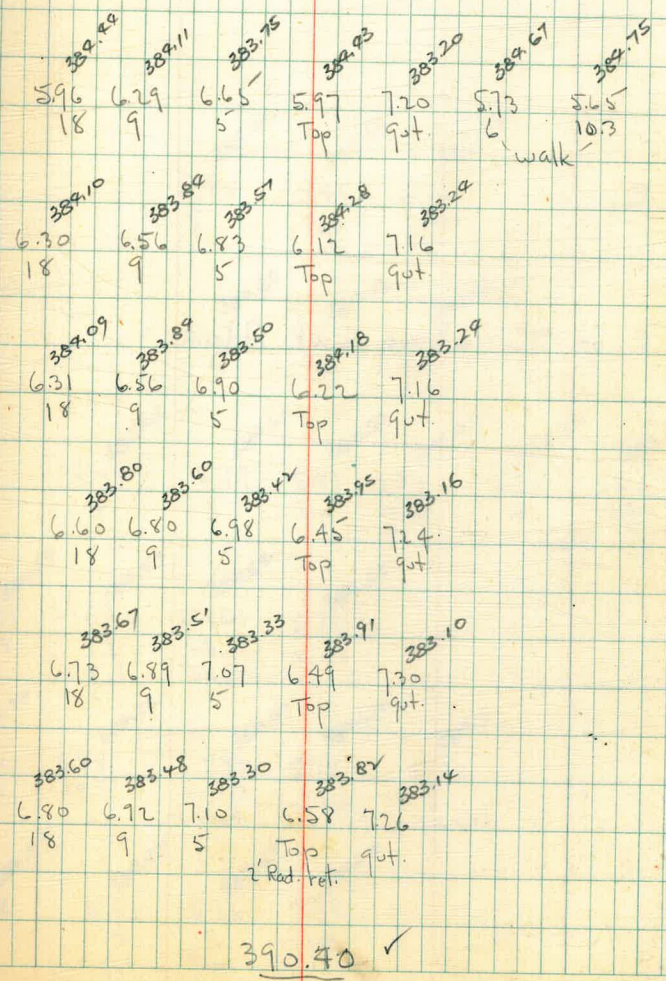 384.44 384.11 383.75 384.43 383.20 384.67 384.75
5.96 6.29 6.65 5.97 7.20 5.73 5.65
18 9 5 Top gut. 6 10.3
walk
384.10 383.84 383.57 384.28 383.24
6.30 6.56 6.83 6.12 7.16
18 9 5 Top gut.
384.09 383.84 383.50 384.18 383.24
6.31 6.56 6.90 6.22 7.16
18 9 5 Top gut.
383.80 383.60 383.42 383.95 383.16
6.60 6.80 6.98 6.45 7.24
18 9 5 Top gut
383.67 383.51 383.33 383.91 383.10
6.73 6.89 7.07 6.49 7.30
18 9 5 Top gut.
383.60 383.48 383.30 383.82 383.14
6.80 6.92 7.10 6.58 7.26
18 9 5 Top gut.
2' Rad. ret.
390.40 ✓